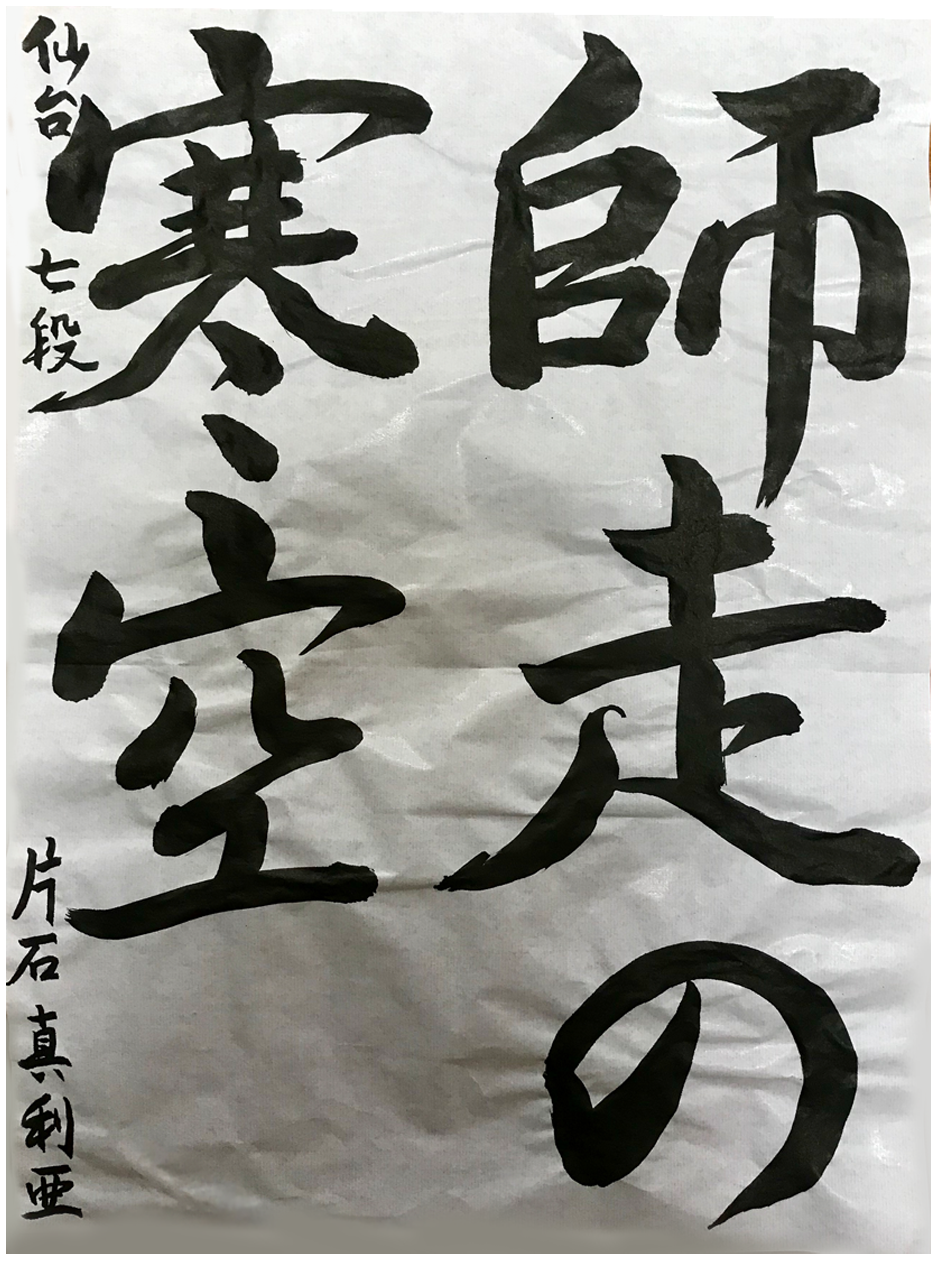 師走の
寒空
仙台 七段 片石真利亜